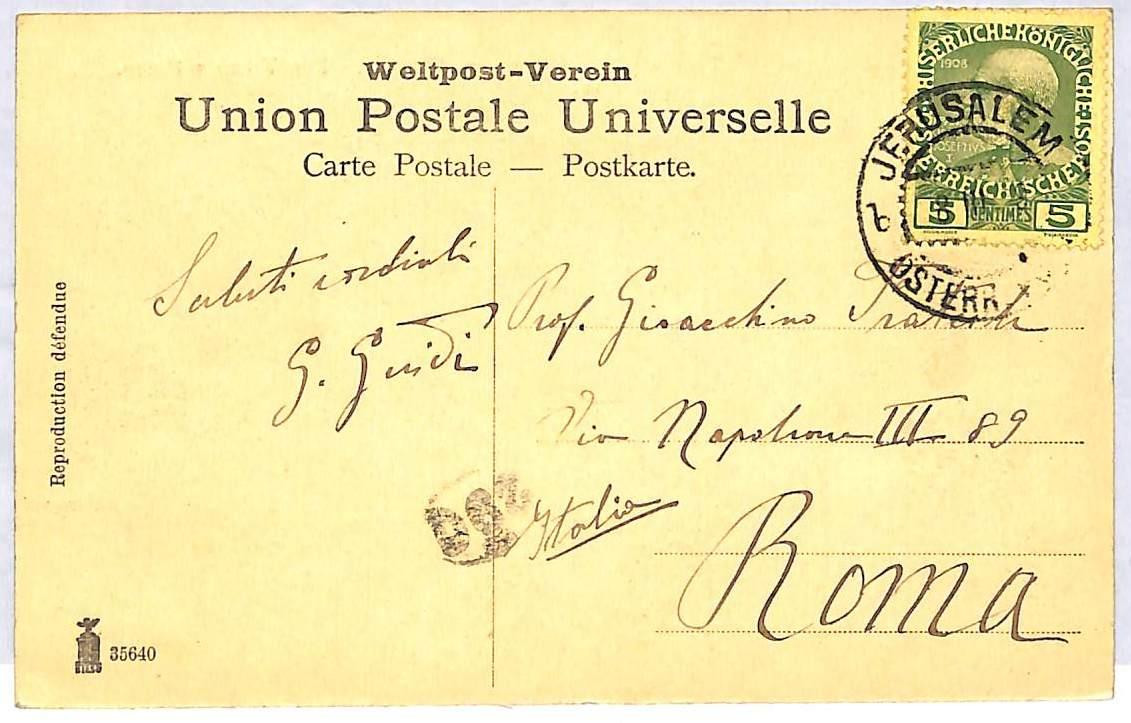 Weltpost-Verein
Union Postale Universelle
Carte Postale — Postkarte.
KAISERLICHEKÖNIGLICHE
1908
ÖSTERREICHISCHEPOST
5 CENTIMES 5
JERUSALEM
b
ÖSTERR
Saluti cordiali
G. Guidi
Prof. Gioacchino
Via Napoleone III 89
Italia
Roma
Reproduction défendue
35640